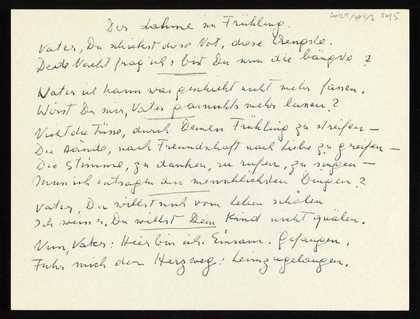 Der Lahme im Frühling.
Vater, Du schickst diese Not, diese Ängste.
Jede Nacht frag ich: bist Du nun die längste?
Vater ich kann was geschieht nicht mehr fassen.
Wirst Du mir, Vater garnichts mehr lassen?
Nicht die Füsse, durch Deinen Frühling zu streifen –
Die Hände, nach Freundschaft nach Liebe zu greifen –
Die Stimme, zu danken, zu rufen, zu singen –
Muss ich entsagen den menschlichsten Dingen?
Vater, Du willst mich vom Leben
Ich weiss es, Du willst Dein Kind nicht quälen.
Nun, Vater: Hier bin ich. Einsam. Gefangen.
Führ mich den Herzweg: heimzugelangen.